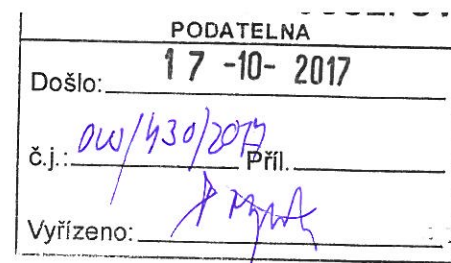 PODATELNA
Došlo: 17 -10- 2017
č.j.: OW/430/2017 Příl.
Vyřízeno: